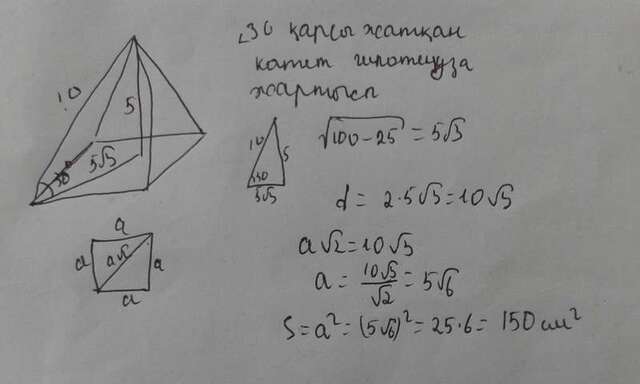 ∠30 қарсы жатқан
катет гипотенуза
жартысы
10
5
5√3
30°
10
5
30
5√3
√100-25 = 5√3
d = 2·5√3=10√3
a
a
a√2
a
a
a√2=10√3
a = 10√3/√2 = 5√6
S=a²=(5√6)²=25·6= 150см²